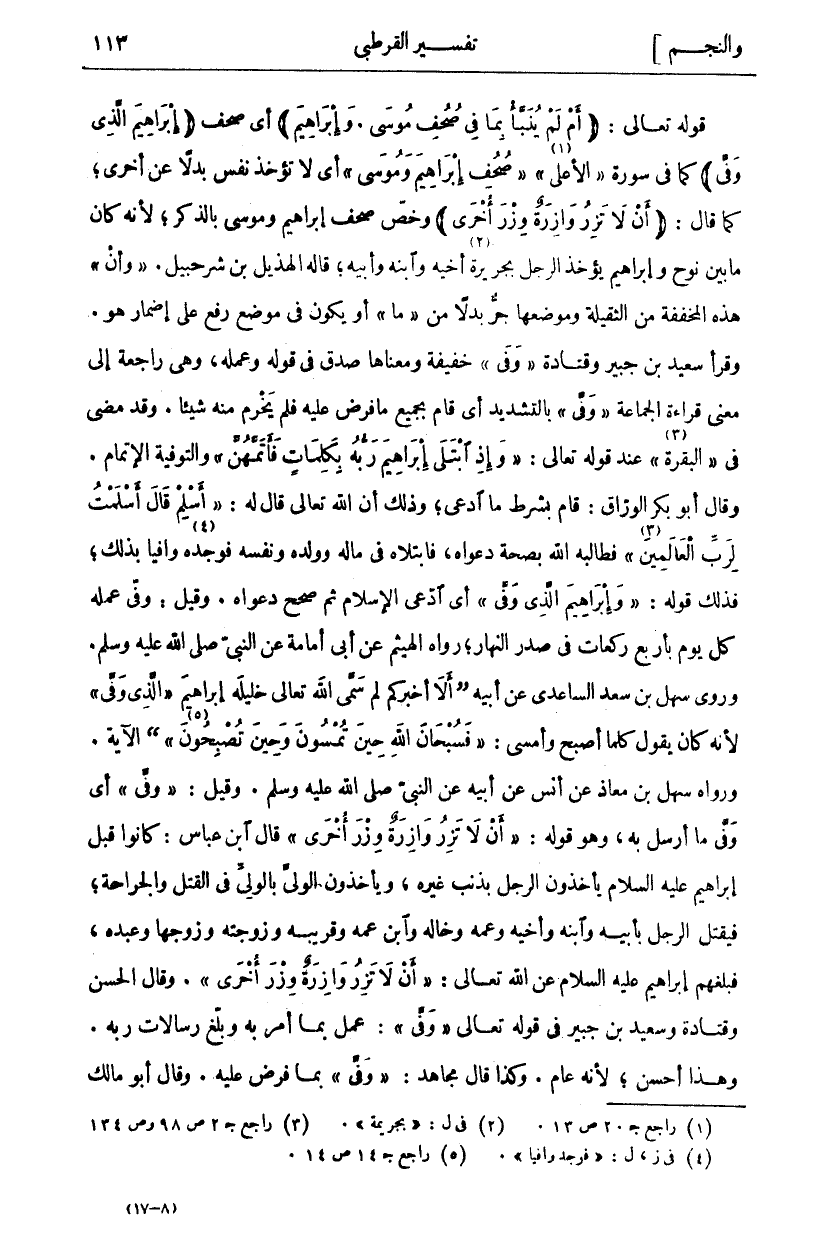 والنجـــم ]
تفســـير القرطبى
١١٣
قوله تعـالى : ﴿ أَمْ لَمْ يُنَبَّأْ بِمَا فِى صُحُفِ مُوسَى . وَإِبْرَاهِيمَ ﴾ أى صحف ﴿ إِبْرَاهِيمَ الَّذِى
وَفَّى ﴾ كما فى سورة « الأعلى (١) » « صُحُفِ إِبْرَاهِيمَ وَمُوسَى » أى لا تؤخذ نفس بدلًا عن أخرى ؛
كما قال : ﴿ أَنْ لَا تَزِرُ وَازِرَةٌ وِزْرَ أُخْرَى ﴾ وخصّ صحف إبراهيم وموسى بالذكر ؛ لأنه كان
مابين نوح وإبراهيم يؤخذ الرجل بجريرة (٢) أخيه وآبنه وأبيه ؛ قاله الهذيل بن شرحبيل . « وأنْ »
هذه المخففة من الثقيلة وموضعها جرٌّ بدلًا من « ما » أو يكون فى موضع رفع على إضمار هو .
وقرأ سعيد بن جبير وقتـادة « وَفَى » خفيفة ومعناها صدق فى قوله وعمله ، وهى راجعة إلى
معنى قراءة الجماعة « وَفَّى » بالتشديد أى قام بجميع مافرض عليه فلم يَخْرِم منه شيئا . وقد مضى
فى « البقرة (٣) » عند قوله تعالى : « وَإِذِ ٱبْتَلَى إِبْرَاهِيمَ رَبُّهُ بِكَلِمَاتٍ فَأَتَمَّهُنَّ » والتوفية الإتمام .
وقال أبو بكر الورّاق : قام بشرط ما آدعى ؛ وذلك أن الله تعالى قال له : « أَسْلِمْ قَالَ أَسْلَمْتُ
لِرَبِّ ٱلْعَالَمِينَ (٣) » فطالبه الله بصحة دعواه ، فابتلاه فى ماله وولده ونفسه فوجده وافيا (٤) بذلك ؛
فذلك قوله : « وَإِبْرَاهِيمَ الَّذِى وَفَّى » أى آدّعى الإسلام ثم صحح دعواه . وقيل : وفّى عمله
كل يوم بأربع ركعات فى صدر النهار ؛ رواه الهيثم عن أبى أمامة عن النبىّ صلى الله عليه وسلم .
وروى سهل بن سعد الساعدى عن أبيه ”أَلَا أخبركم لم سَمَّى اللهُ تعالى خليلَه إبراهيمَ « الَّذِى وَفَّى»
لأنه كان يقول كلما أصبح وأمسى : « فَسُبْحَانَ اللهِ حِينَ تُمْسُونَ وَحِينَ تُصْبِحُونَ (٥) » “ الآية .
ورواه سهل بن معاذ عن أنس عن أبيه عن النبىّ صلى الله عليه وسلم . وقيل : « وفّى » أى
وَفَّى ما أرسل به ، وهو قوله : « أَنْ لَا تَزِرُ وَازِرَةٌ وِزْرَ أُخْرَى » قال آبن عباس : كانوا قبل
إبراهيم عليه السلام يأخذون الرجل بذنب غيره ، ويأخذون الولىّ بالولىّ فى القتل والجراحة ؛
فيقتل الرجل بأبيـه وآبنه وأخيه وعمه وخاله وآبن عمه وقريبـه وزوجته وزوجها وعبده ،
فبلغهم إبراهيم عليه السلام عن الله تعـالى : « أَنْ لَا تَزِرُ وَازِرَةٌ وِزْرَ أُخْرَى » . وقال الحسن
وقتـادة وسعيد بن جبير فى قوله تعالى « وَفَّى » : عمل بمـا أمر به وبلّغ رسالات ربه .
وهـذا أحسن ؛ لأنه عام . وكذا قال مجاهد : « وَفَّى » بمـا فرض عليه . وقال أبو مالك
(١) راجع جـ ٢٠ ص ١٣ . (٢) فى ل : « بجريمة » . (٣) راجع جـ ٢ ص ٩٨ وص ١٣٤
(٤) فى ز ، ل : « فوجد وافيا » . (٥) راجع جـ ١٤ ص ١٤ .
(١٧–٨)